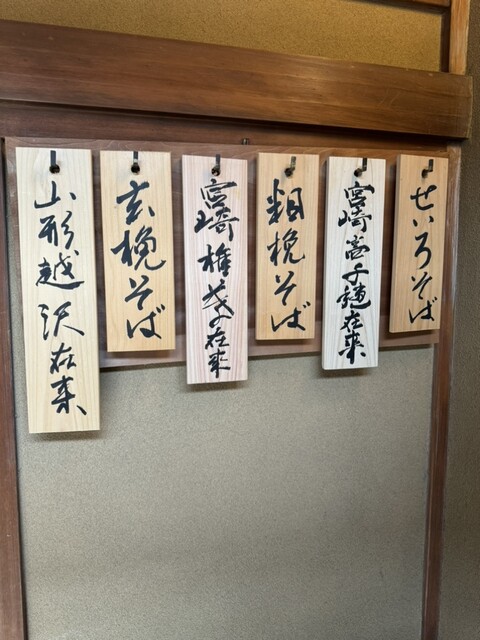 せいろそば
宮崎高千穂在来
粗挽そば
宮崎椎葉在来
玄挽そば
山形越沢在来